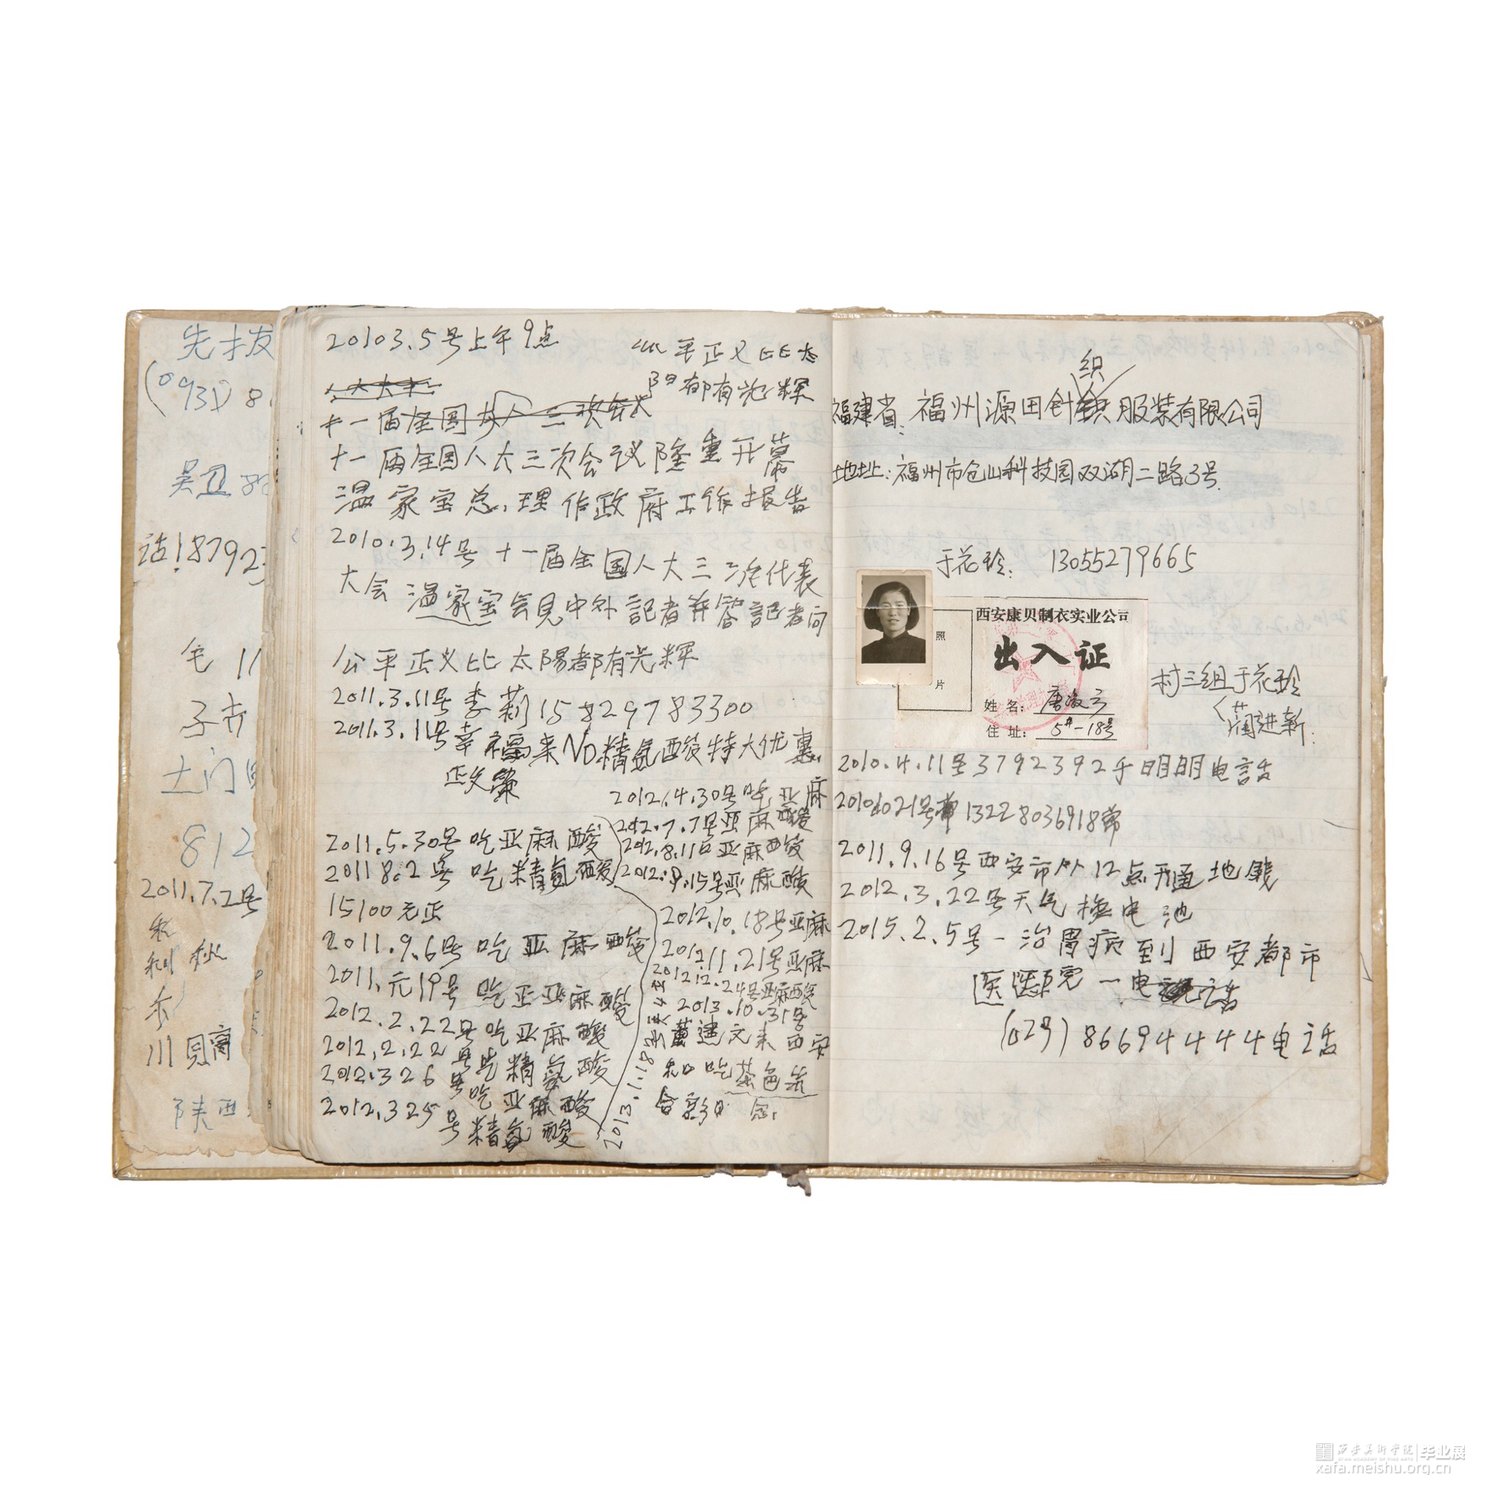 先拔
(0931) 8
吴卫 86
话!18792
毛 11
土门
812
2011.7.2号
川贝
陕西
20103.5号上午9点
公平正义比太
阳都有光辉
十一届全国人大三次会议隆重开幕
温家宝总理作政府工作报告
2010.3.14号 十一届全国人大三次代表
大会 温家宝会见中外記者并答記者问
公平正义比太陽都有光辉
2011.3.11号李莉15829783300
2011.3.11号幸福来NO精氨酸特大优惠
正文策
2011.5.30号吃亚麻酸
2011 8.2号吃精氨酸
15100元正
2011.9.6号吃亚麻酸
2011.元19号吃亚亚麻酸
2012.2.22号吃亚麻酸
2012.2.22号吃精氨酸
2012.326号吃亚麻酸
2012.325号精氨酸
2012.4.30号吃亚麻
2012.7.7号亚麻酸
2012.8.11号亚麻酸
2012.9.15号亚麻酸
2012.10.18号亚麻
2012.11.21号亚麻
2012 12.24号亚麻酸
2013.10.31号
黄建文来西安
和吃茶色素
合影
2013.1.18号
织
福建省:福州源田针织服装有限公司
地址:福州市仓山科技园双湖二路3号.
于花玲: 13055279665
西安康贝制衣实业公司
出入证
照
片
姓名:唐
住址:5#-18号
村三组于花玲
蔺进新:
2010.4.11号3792392于明明电話
13228036918
2011.9.16号西安市从12点开通地鐵
2012.3.22号天气 电池
2015.2.5号-治胃病到西安都市
医医院-电话
(029)86694444电话
西安美术学院 毕业展
xafa.meishu.org.cn